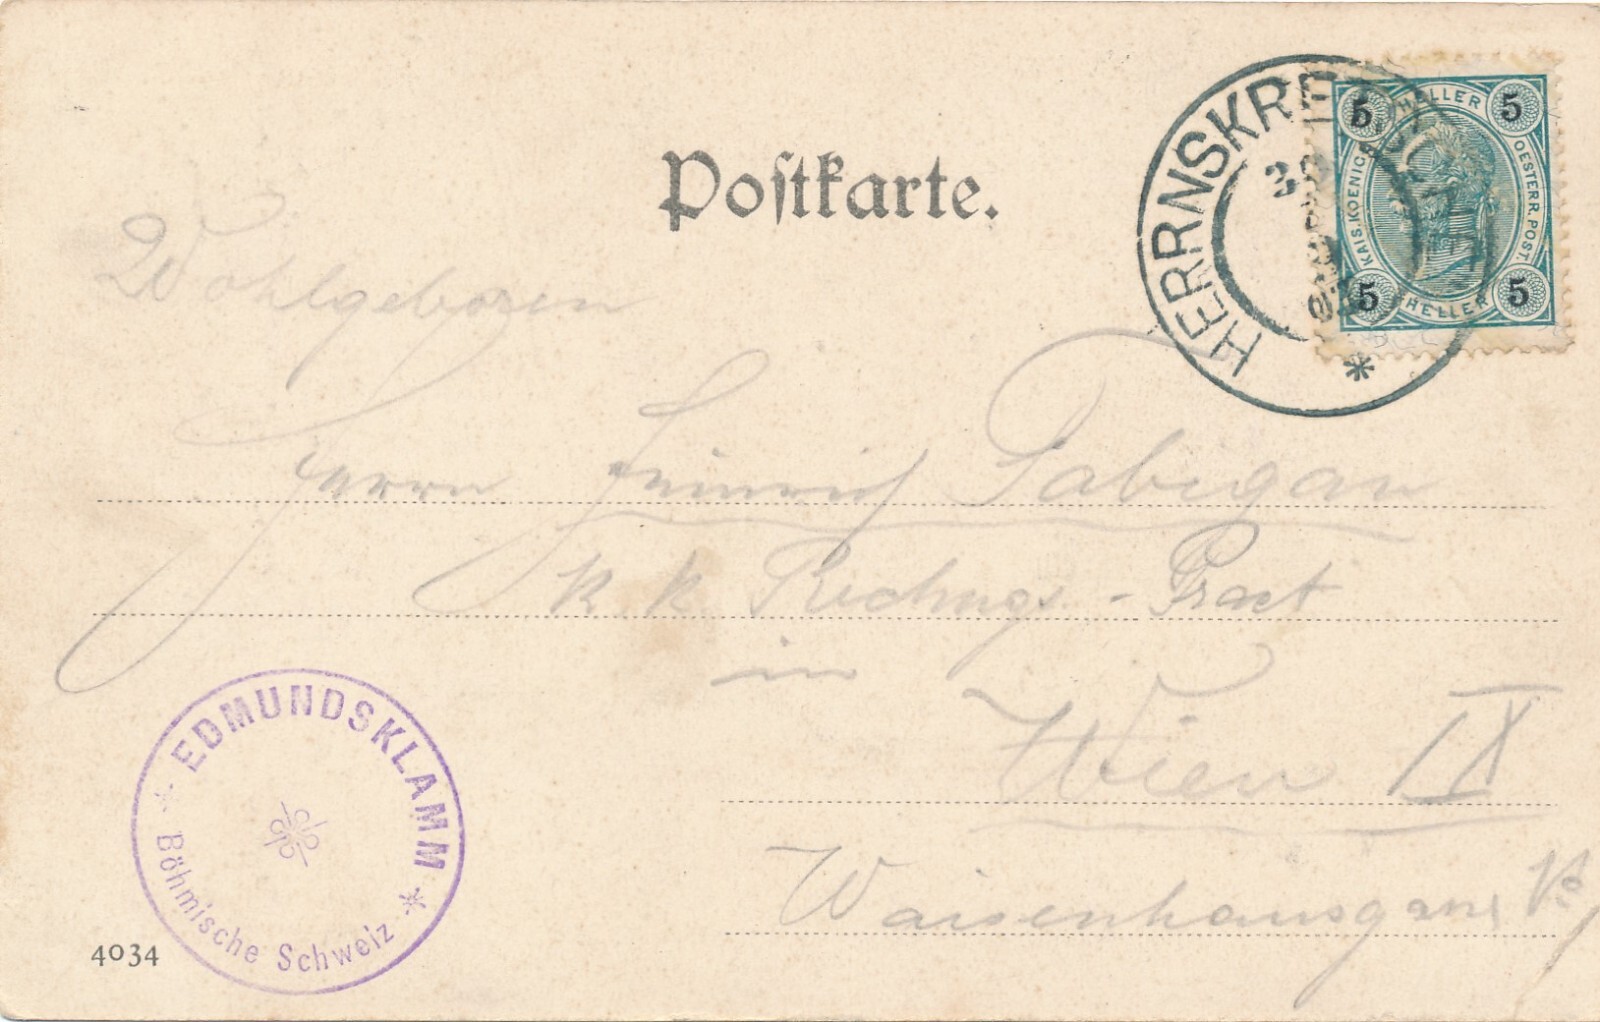 Postkarte.
HERRNSKRETSCHEN
5 HELLER 5
KAIS. KOENIGL. OESTERR. POST.
5 HELLER 5
Wohlgeboren
Herrn Heinrich Tabigan
k k Rechngs. - Pract
in
Wien IX
Waisenhausgasse
* EDMUNDSKLAMM *
Böhmische Schweiz
4034